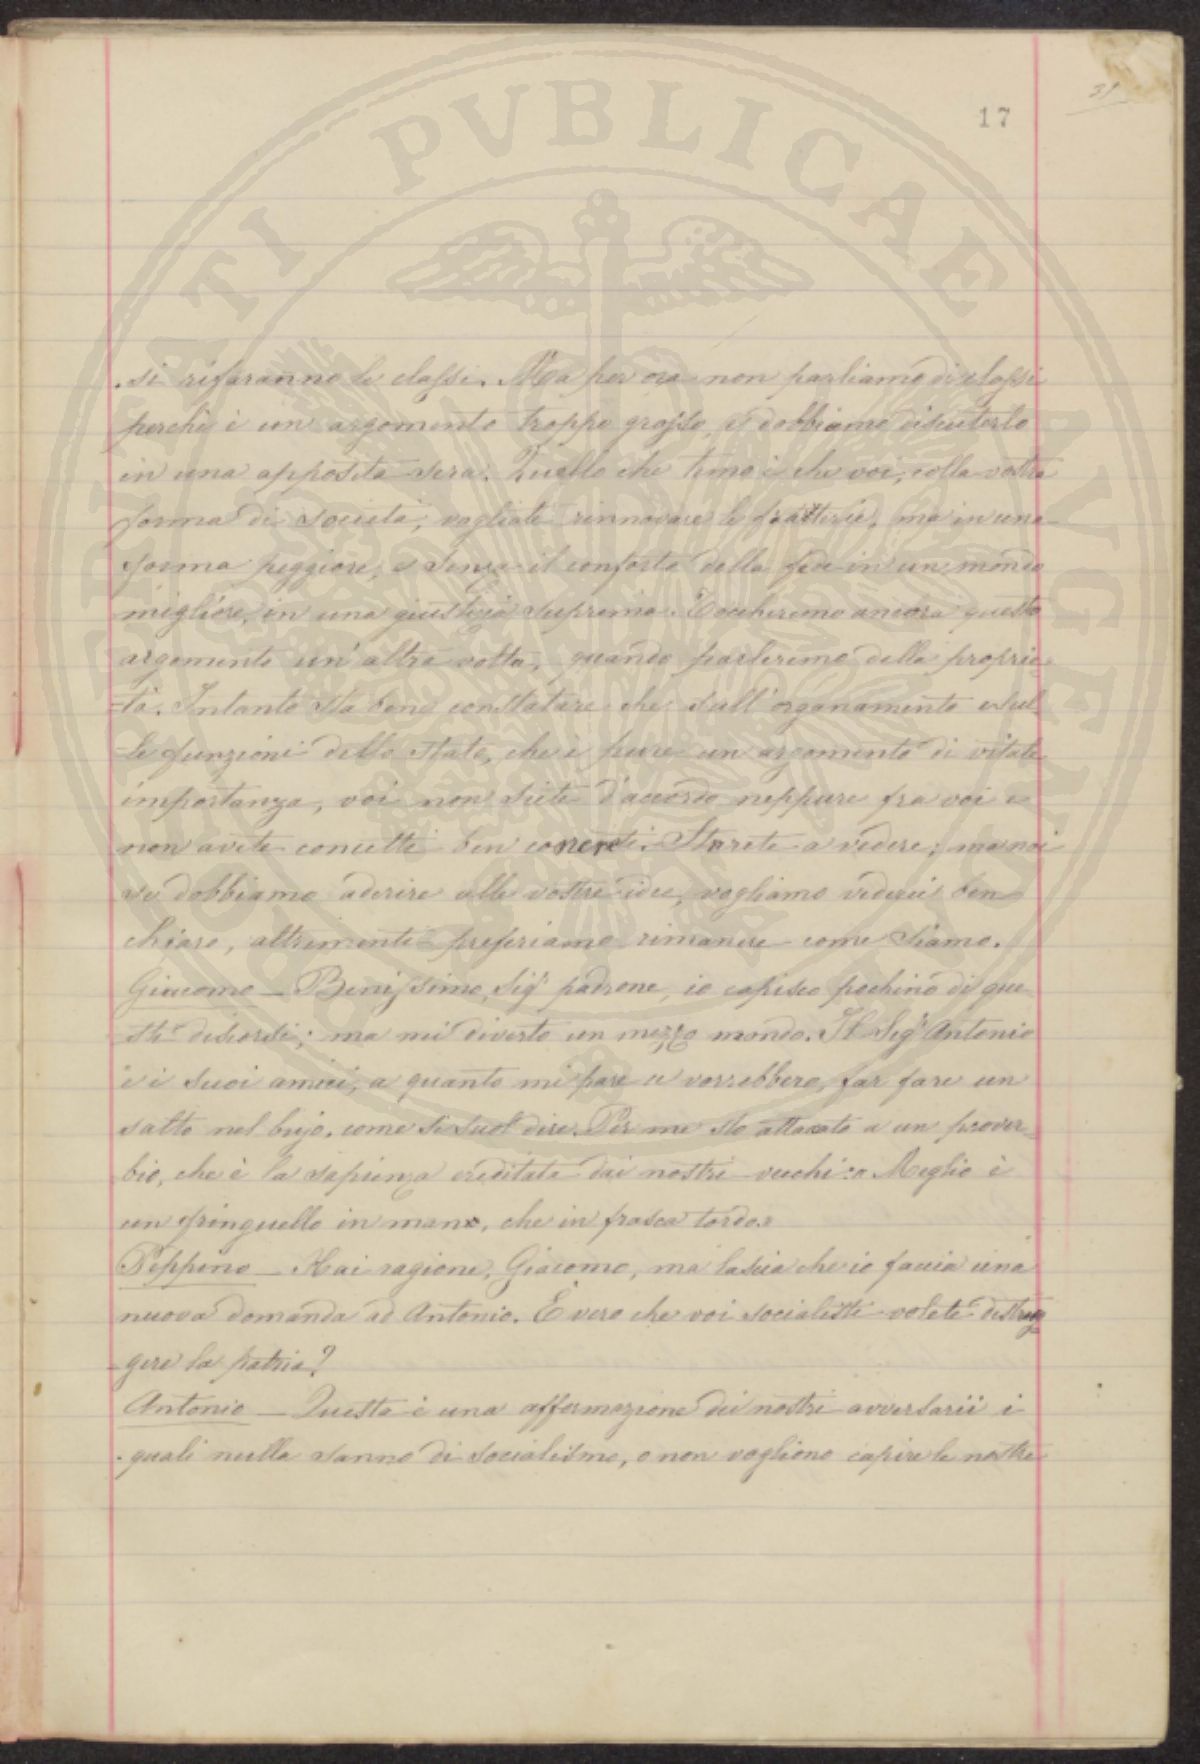 31
17
si rifaranno le classi. Ma per ora non parliamo di classi
perchè è un argomento troppo grosso, e dobbiamo discuterlo
in una apposita sera. Quello che temo è che voi, colla vostra
forma di società, vogliate rinnovare le fratterie, ma in una
forma peggiore, e senza il conforto della fede in un mondo
migliore, in una giustizia suprema. Toccheremo ancora questo
argomento un'altra volta, quando parleremo della proprie-
tà. Intanto sta bene constatare che sull'organamento e sul-
le funzioni dello Stato, che è pure un argomento di vitale
importanza, voi non siete d'accordo neppure fra voi e
non avete concetti ben concreti. Starete a vedere; ma noi
se dobbiamo aderire alle vostre idee, vogliamo vederci ben
chiaro, altrimenti preferiamo rimanere come siamo.
Giacomo — Benissimo, Sigr padrone, io capisco pochino di que-
sti discorsi; ma mi diverto un mezzo mondo. Il Sigr Antonio
e i suoi amici, a quanto mi pare ci vorrebbero, far fare un
salto nel bujo, come si suol dire. Per me sto attaccato a un prover-
bio, che è la sapienza ereditata dai nostri vecchi: « Meglio è
un fringuello in mano, che in frasca tordo. »
Peppino — Hai ragione, Giacomo, ma lascia che io faccia una
nuova domanda ad Antonio. È vero che voi socialisti volete distrug
gere la patria?
Antonio — Questa è una affermazione dei nostri avversarii i
quali nulla sanno di socialismo, o non vogliono capire le nostre
PVBLICAE